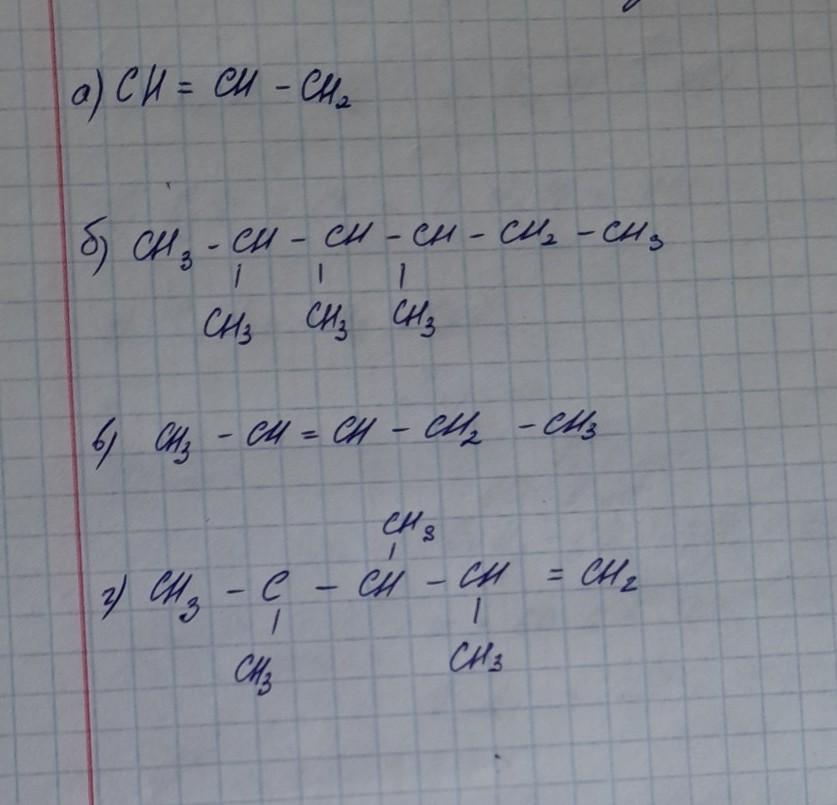 а) CH = CH - CH₂
б) CH₃ - CH - CH - CH - CH₂ - CH₃
CH₃ CH₃ CH₃
в) CH₃ - CH = CH - CH₂ - CH₃
CH₃
г) CH₃ - C - CH - CH = CH₂
CH₃ CH₃